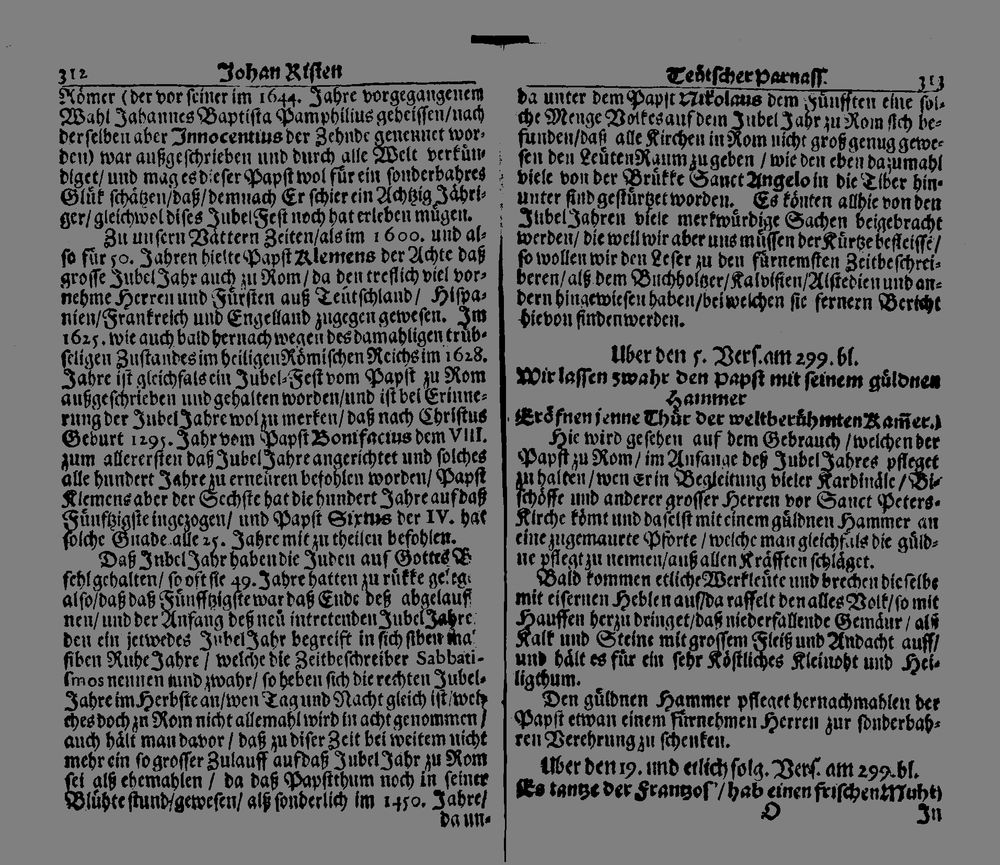 312 Johan Risten
Römer (der vor seiner im 1644. Jahre vorgegangenem
Wahl Jahannes Baptista Pamphilius geheissen/nach
derselben aber Innocentius der Zehnde genennet wor-
den) war außgeschrieben und durch alle Welt verkün-
diget/ und mag es dieser Papst wol für ein sonderbahres
Glük schätzen/daß/demnach Er schier ein Achtzig Jähri-
ger/gleichwol dises Jubel Fest noch hat erleben mügen.
Zu unsern Vättern Zeiten/als im 1600. und al-
so für 50. Jahren hielte Papst Klemens der Achte daß
grosse Jubel Jahr auch zu Rom/ da den treflich viel vor-
nehme Herren und Fürsten auß Teütschland/ Hispa-
nien/Frankreich und Engelland zugegen gewesen. Im
1625. wie auch bald hernach wegen des damahligen trüb-
seligen Zustandes im heiligen Römischen Reichs im 1628.
Jahre ist gleichfals ein Jubel-Fest vom Papst zu Rom
außgeschrieben und gehalten worden/und ist bei Erinne-
rung der Jubel Jahre wol zu merken/ daß nach Christus
Geburt 1295. Jahr vom Papst Bonifacius dem VIII.
zum allerersten daß Jubel Jahre angerichtet und solches
alle hundert Jahre zu erneüren befohlen worden/ Papst
Klemens aber der Sechste hat die hundert Jahre auf daß
Fünftzigste ingezogen/ und Papst Sixtus der IV. hat
solche Gnade alle 25. Jahre mit zu theilen befohlen.
Daß Jubel Jahr haben die Juden aus Gottes
fehl gehalten/ so oft sie 49. Jahre hatten zu rükke
also/daß daß Fünfftzigste war daß Ende deß
nen/ und der Anfang deß neü intretenden Jubel Jahre
den ein jetwedes Jubel Jahr begreift in sich siben
siben Ruhe Jahre/ welche die Zeitbeschreiber Sabbati-
smos nennen und zwahr/ so heben sich die rechten Jubel-
Jahre im Herbste an/wen Tag und Nacht gleich ist/wel-
ches doch zu Rom nicht allemahl wird in acht genommen/
auch hält man davor/ daß zu diser Zeit bei weitem nicht
mehr ein so grosser Zulauff auf daß Jubel Jahr zu Rom
sei alß ehemahlen/ da daß Papstthum noch in seiner
Blühte stund/gewesen/ alß sonderlich im 1450. Jahre/
da un-
Teütscher Parnass. 313
da unter dem Papst Nikolaus dem Fünfften eine sol-
che Menge Volkes auf dem Jubel Jahr zu Rom sich be-
funden/daß alle Kirchen in Rom nicht groß genug gewe-
sen den Leüten Raum zu geben/ wie den eben dazumahl
viele von der Brükke Sanct Angelo in die Tiber hin-
unter sind gestürtzet worden. Es könten allhie von den
Jubel Jahren viele merkwürdige Sachen beigebracht
werden/ die weil wir aber uns müssen der Kürtze befleisse/
so wollen wir den Leser zu den fürnemsten Zeitbeschrei-
beren/ alß dem Buchholtzer/Kalvisien/Alstedien und an-
dern hingewiesen haben/bei welchen sie fernern Bericht
hievon finden werden.
Uber den 5. Vers. am 299. bl.
Wir lassen zwahr den Papst mit seinem güldnen
Hammer
Eröfnen jenne Thür der weltberühmten Kam̄er.)
Hie wird gesehen auf dem Gebrauch/welchen der
Papst zu Rom/ im Anfange deß Jubel Jahres pfleget
zu halten/ wen Er in Begleitung vieler Kardinäle/ Bi-
schöffe und anderer grosser Herren vor Sanct Peters-
Kirche kömt und daselst mit einem güldnen Hammer an
eine zugemaurte Pforte/ welche man gleichfals die güld-
ne pflegt zu nennen/auß allen Kräfften schläget.
Bald kommen etliche Werkleüte und brechen dieselbe
mit eisernen Heblen auf/da raffelt den alles Volk/so mit
Hauffen herzu dringet/daß niederfallende Gemäur/ alß
Kalk und Steine mit grossem Fleiß und Andacht auff/
und hält es für ein sehr Köstliches Kleinoht und Hei-
ligthum.
Den güldnen Hammer pfleget hernachmahlen der
Papst etwan einem fürnehmen Herren zur sonderbah-
ren Verehrung zu schenken.
Uber den 19. und etlich folg. Vers. am 299. bl.
Es tantze der Frantzos'/ hab einen frischen Muht)
O In